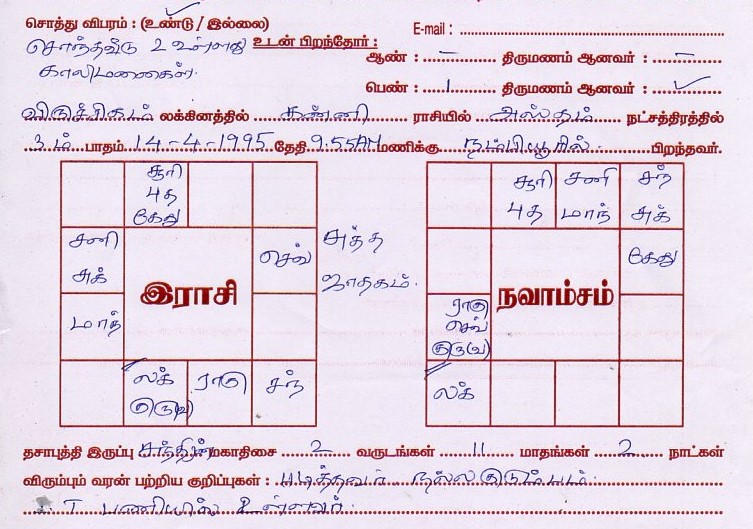 சொத்து விபரம் : (உண்டு / இல்லை)
E-mail :
சொந்தவீடு 2 உள்ளது
உடன் பிறந்தோர் :
ஆண் : – திருமணம் ஆனவர் : –
காலிமனைகள்.
பெண் : 1 திருமணம் ஆனவர் : ✓
விருச்சிகம் லக்கினத்தில் கன்னி ராசியில் அஸ்தம் நட்சத்திரத்தில்
3ம் பாதம் 14-4-1995 தேதி 9.55AM மணிக்கு நம்பியூரில் பிறந்தவர்.
சூரி
புத
கேது
சனி
சுக்
செவ்
மாந்
லக்
குரு
ராகு
சந்
இராசி
சுத்த
ஜாதகம்.
சூரி
புத
சனி
மாந்
சந்
சுக்
கேது
ராகு
செவ்
குரு
லக்
நவாம்சம்
தசாபுத்தி இருப்பு சந்திரன் மகாதிசை 2 வருடங்கள் 11 மாதங்கள் 2 நாட்கள்
விரும்பும் வரன் பற்றிய குறிப்புகள் : படித்தவர் நல்லகுடும்பம்.
I.T பணியில் உள்ளவர்.